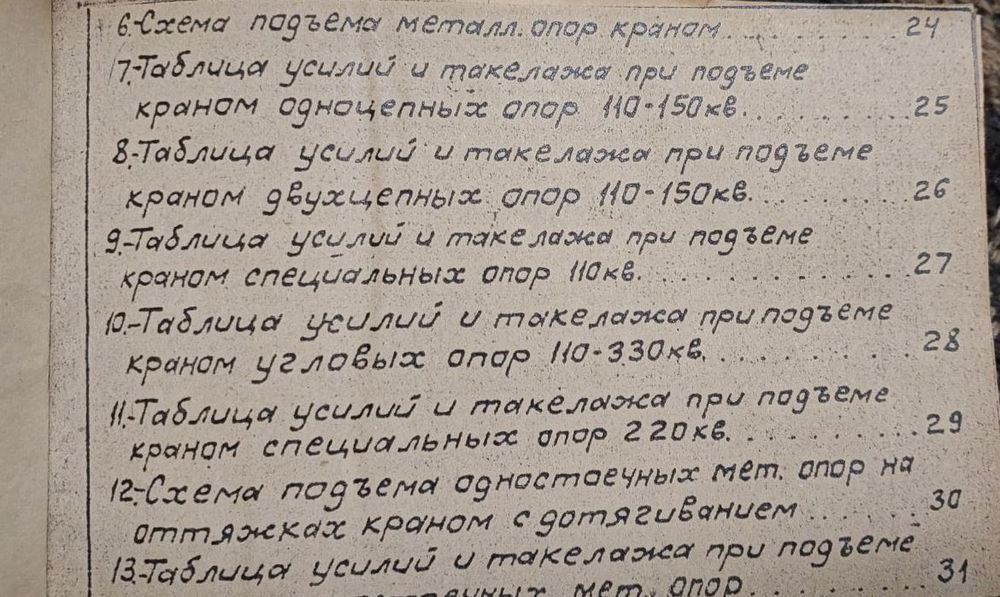 6.-Схема подъема металл. опор краном.......... 24
7.-Таблица усилий и такелажа при подъеме
краном одноцепных опор 110-150кв.......... 25
8.-Таблица усилий и такелажа при подъеме
краном двухцепных опор 110-150кв.......... 26
9.-Таблица усилий и такелажа при подъеме
краном специальных опор 110кв............... 27
10.-Таблица усилий и такелажа при подъеме
краном угловых опор 110-330кв............ 28
11.-Таблица усилий и такелажа при подъеме
краном специальных опор 220кв........... 29
12.-Схема подъема одностоечных мет. опор на
оттяжках краном с дотягиванием....... 30
13.-Таблица усилий и такелажа при подъеме
мет. опор.......... 31